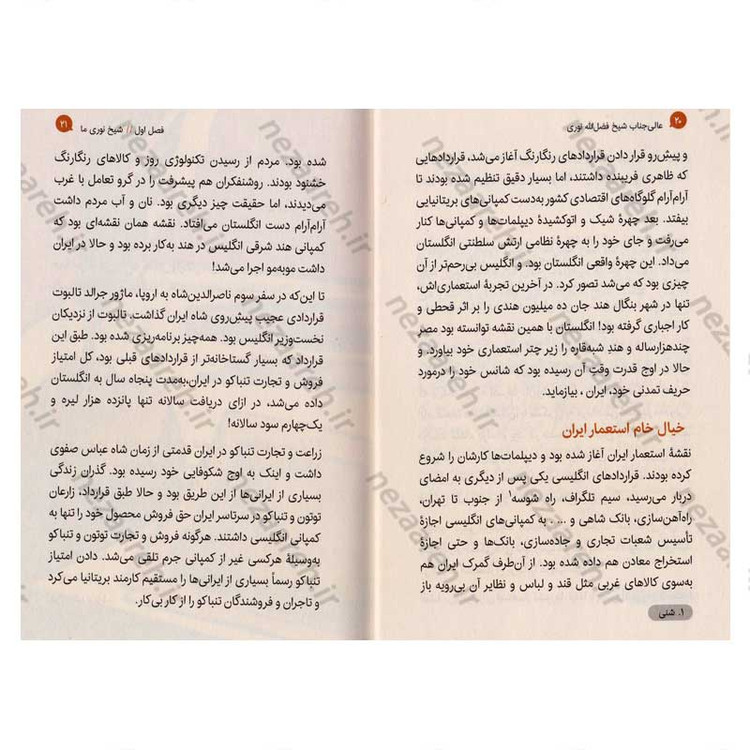 ۲۰ عالی‌جناب شیخ فضل‌الله نوری
و پیش‌رو قرار دادن قراردادهای رنگارنگ آغاز می‌شد، قراردادهایی
که ظاهری فریبنده داشتند، اما بسیار دقیق تنظیم شده بودند تا
آرام‌آرام گلوگاه‌های اقتصادی کشور به‌دست کمپانی‌های بریتانیایی
بیفتد. بعد چهرهٔ شیک و اتوکشیدهٔ دیپلمات‌ها و کمپانی‌ها کنار
می‌رفت و جای خود را به چهرهٔ نظامی ارتش سلطنتی انگلستان
می‌داد. این چهرهٔ واقعی انگلستان بود. و انگلیس بی‌رحم‌تر از آن
چیزی بود که می‌شد تصور کرد. در آخرین تجربهٔ استعماری‌اش،
تنها در شهر بنگال هند جان ده میلیون هندی را بر اثر قحطی و
کار اجباری گرفته بود! انگلستان با همین نقشه توانسته بود مصر
چندهزارساله و هندِ شبه‌قاره را زیر چتر استعماری خود بیاورد. و
حالا در اوج قدرت وقتِ آن رسیده بود که شانس خود را درمورد
حریف تمدنی خود، ایران ، بیازماید.
خیال خام استعمار ایران
نقشهٔ استعمار ایران آغاز شده بود و دیپلمات‌ها کارشان را شروع
کرده بودند. قراردادهای انگلیسی یکی پس از دیگری به امضای
دربار می‌رسید، سیم تلگراف، راه شوسه۱ از جنوب تا تهران،
راه‌آهن‌سازی، بانک شاهی و ... . به کمپانی‌های انگلیسی اجازهٔ
تأسیس شعبات تجاری و جاده‌سازی، بانک‌ها و حتی اجازهٔ
استخراج معادن هم داده شده بود. از آن‌طرف گمرک ایران هم
به‌سوی کالاهای غربی مثل قند و لباس و نظایر آن بی‌رویه باز
۱. شنی
فصل اول // شیخ نوری ما ۲۱
شده بود. مردم از رسیدن تکنولوژی روز و کالاهای رنگارنگ
خشنود بودند. روشنفکران هم پیشرفت را در گرو تعامل با غرب
می‌دیدند، اما حقیقت چیز دیگری بود. نان و آب مردم داشت
آرام‌آرام دست انگلستان می‌افتاد. نقشه همان نقشه‌ای بود که
کمپانی هند شرقی انگلیس در هند به‌کار برده بود و حالا در ایران
داشت موبه‌مو اجرا می‌شد!
تا این‌که در سفر سوم ناصرالدین‌شاه به اروپا، ماژور جرالد تالبوت
قراردادی عجیب پیش‌روی شاه ایران گذاشت. تالبوت از نزدیکان
نخست‌وزیر انگلیس بود. همه‌چیز برنامه‌ریزی شده بود. طبق این
قرارداد که بسیار گستاخانه‌تر از قراردادهای قبلی بود، کل امتیاز
فروش و تجارت تنباکو در ایران،به‌مدت پنجاه سال به انگلستان
داده می‌شد، در ازای دریافت سالانه تنها پانزده هزار لیره و
یک‌چهارم سود سالانه!
زراعت و تجارت تنباکو در ایران قدمتی از زمان شاه عباس صفوی
داشت و اینک به اوج شکوفایی خود رسیده بود. گذران زندگی
بسیاری از ایرانی‌ها از این طریق بود و حالا طبق قرارداد، زارعان
توتون و تنباکو در سرتاسر ایران حق فروش محصول خود را تنها به
کمپانی انگلیسی داشتند. هرگونه فروش و تجارت توتون و تنباکو
به‌وسیلهٔ هرکسی غیر از کمپانی جرم تلقی می‌شد. دادن امتیاز
تنباکو رسماً بسیاری از ایرانی‌ها را مستقیم کارمند بریتانیا می‌کرد
و تاجران و فروشندگان تنباکو را از کار بی‌کار.
nezaareh.ir